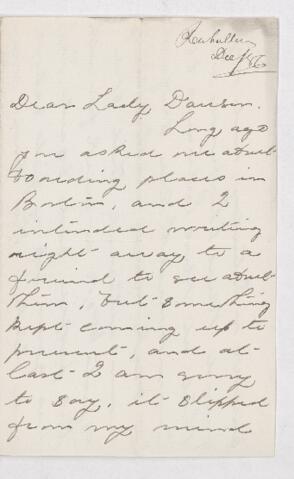 Dec 1/86
Dear Lady Dawson.
Long ago
you asked me about
boarding places in
Boston, and I
intended writing
right away to a
friend to see about
them, but something
kept coming up to
prevent, and at
last I am sorry
to say, it slipped
from my mind